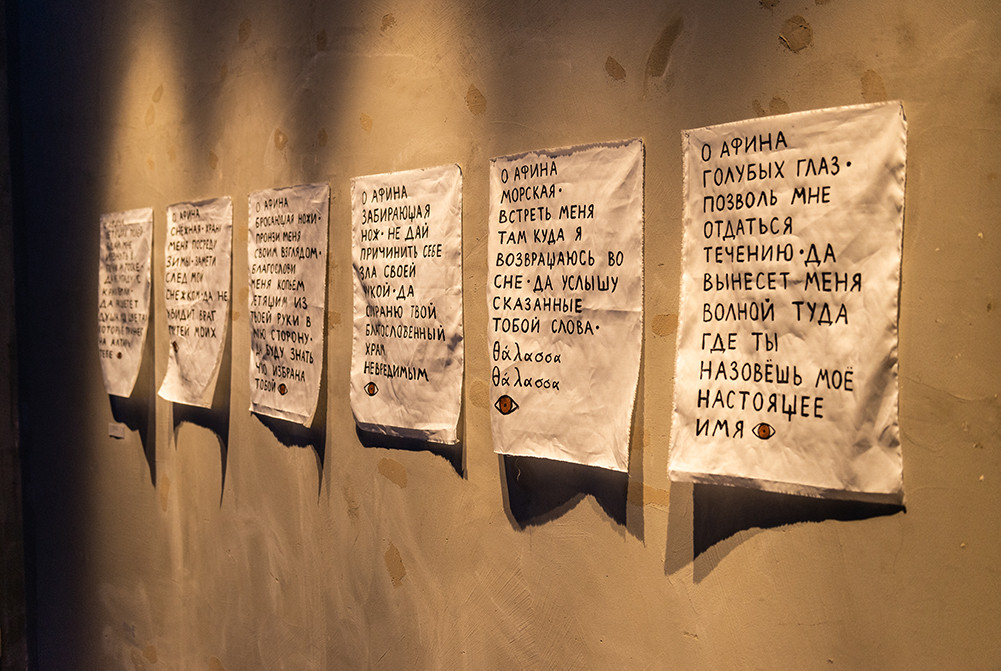 НА
ТЕБЕ
О АФИНА
СНЕЖНАЯ·ХРАНИ
МЕНЯ ПОСРЕДИ
ЗИМЫ·ЗАМЕТИ
СЛЕД МОЙ
СНЕЖКОМ·ДА НЕ
УВИДИТ ВРАГ
ПУТЕЙ МОИХ
О АФИНА
БРОСАЮЩАЯ НОЖИ·
ПРОНЗИ МЕНЯ
СВОИМ ВЗГЛЯДОМ·
БЛАГОСЛОВИ
МЕНЯ КОПЬЕМ
ЛЕТЯЩИМ ИЗ
ТВОЕЙ РУКИ В
МОЮ СТОРОНУ·
ДА БУДУ ЗНАТЬ
ЧТО ИЗБРАНА
ТОБОЙ
О АФИНА
ЗАБИРАЮЩАЯ
НОЖ·НЕ ДАЙ
ПРИЧИНИТЬ СЕБЕ
ЗЛА СВОЕЙ
РУКОЙ·ДА
СОХРАНЮ ТВОЙ
БЛАГОСЛОВЕННЫЙ
ХРАМ
НЕВРЕДИМЫМ
О АФИНА
МОРСКАЯ·
ВСТРЕТЬ МЕНЯ
ТАМ КУДА Я
ВОЗВРАЩАЮСЬ ВО
СНЕ·ДА УСЛЫШУ
СКАЗАННЫЕ
ТОБОЙ СЛОВА·
θάλασσα
θάλασσα
О АФИНА
ГОЛУБЫХ ГЛАЗ·
ПОЗВОЛЬ МНЕ
ОТДАТЬСЯ
ТЕЧЕНИЮ·ДА
ВЫНЕСЕТ МЕНЯ
ВОЛНОЙ ТУДА
ГДЕ ТЫ
НАЗОВЁШЬ МОЁ
НАСТОЯЩЕЕ
ИМЯ